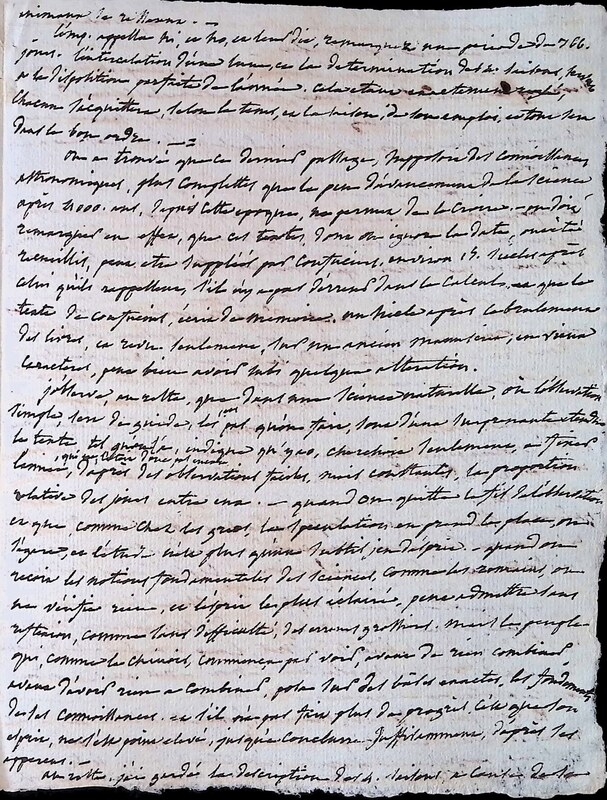 animaux de
L'emp. appella hi, et ho, et leur dit, remarquez une periode de 366.
jours. L'intercalation d'une lune, et la determination des 4. saisons, servent
a la disposition parfaite de l'année. cela etant exactement reglé,
chacun s'acquittera, selon le tems, et la saison, de son emploi, et tout sera
dans le bon ordre. —
On a trouvé que ce dernier passage, supposoit des connoissances
astronomiques, plus complettes que le peu d'avancement de la science
après 4000. ans, depuis cette epoque, ne permet de le croire. — on doit
remarquer en effet, que ces textes, dont on ignore la date, ont été
recueillis, peut etre suppléés par Confucius, environ 15. siecles après
celui qu'ils rappellent, s'il n'y a pas d'erreur dans le calcul, et que le
texte de confucius, écrit de memoire un siecle après le brulement
des livres, et revu seulement, sur un ancien manuscrit, en vieux
caracteres, peut bien avoir subi quelque alteration.
J'observe, au reste, que dans une science naturelle, où l'observation
simple, sert de guide, les pas qu'on fait, sont d'une surprenante etendue.
le texte tel qu'on l'a, indique qu'yao, cherchoit seulement, a fixer
l'année, d'après des observations faites, mais constantes, la proportion
relative des jours entre eux. — quand on quitte le fil de l'observation
et que, comme chez les grecs, la speculation en prend la place, on
s'egare, et l'étude n'est plus qu'un subtil jeu d'esprit. — quand on
reçoit les notions fondamentales des sciences, comme les romains, on
ne vérifie rien, et l'esprit le plus éclairé, peut admettre sans
reflexion, comme sans difficulté, des erreurs grossieres. mais le peuple
qui, comme le chinois, commence par voir, avant de rien combiner
avant d'avoir rien a combiner, pose sur des bases exactes, les fondements
de ses connoissances. et s'il n'a pas fait plus de progrès c'est que son
esprit, ne s'est point elevé, jusqu'a conclure suffisamment, d'après les
apparences. —
au reste. j'ai gardé la description des 4. saisons, a cause de la